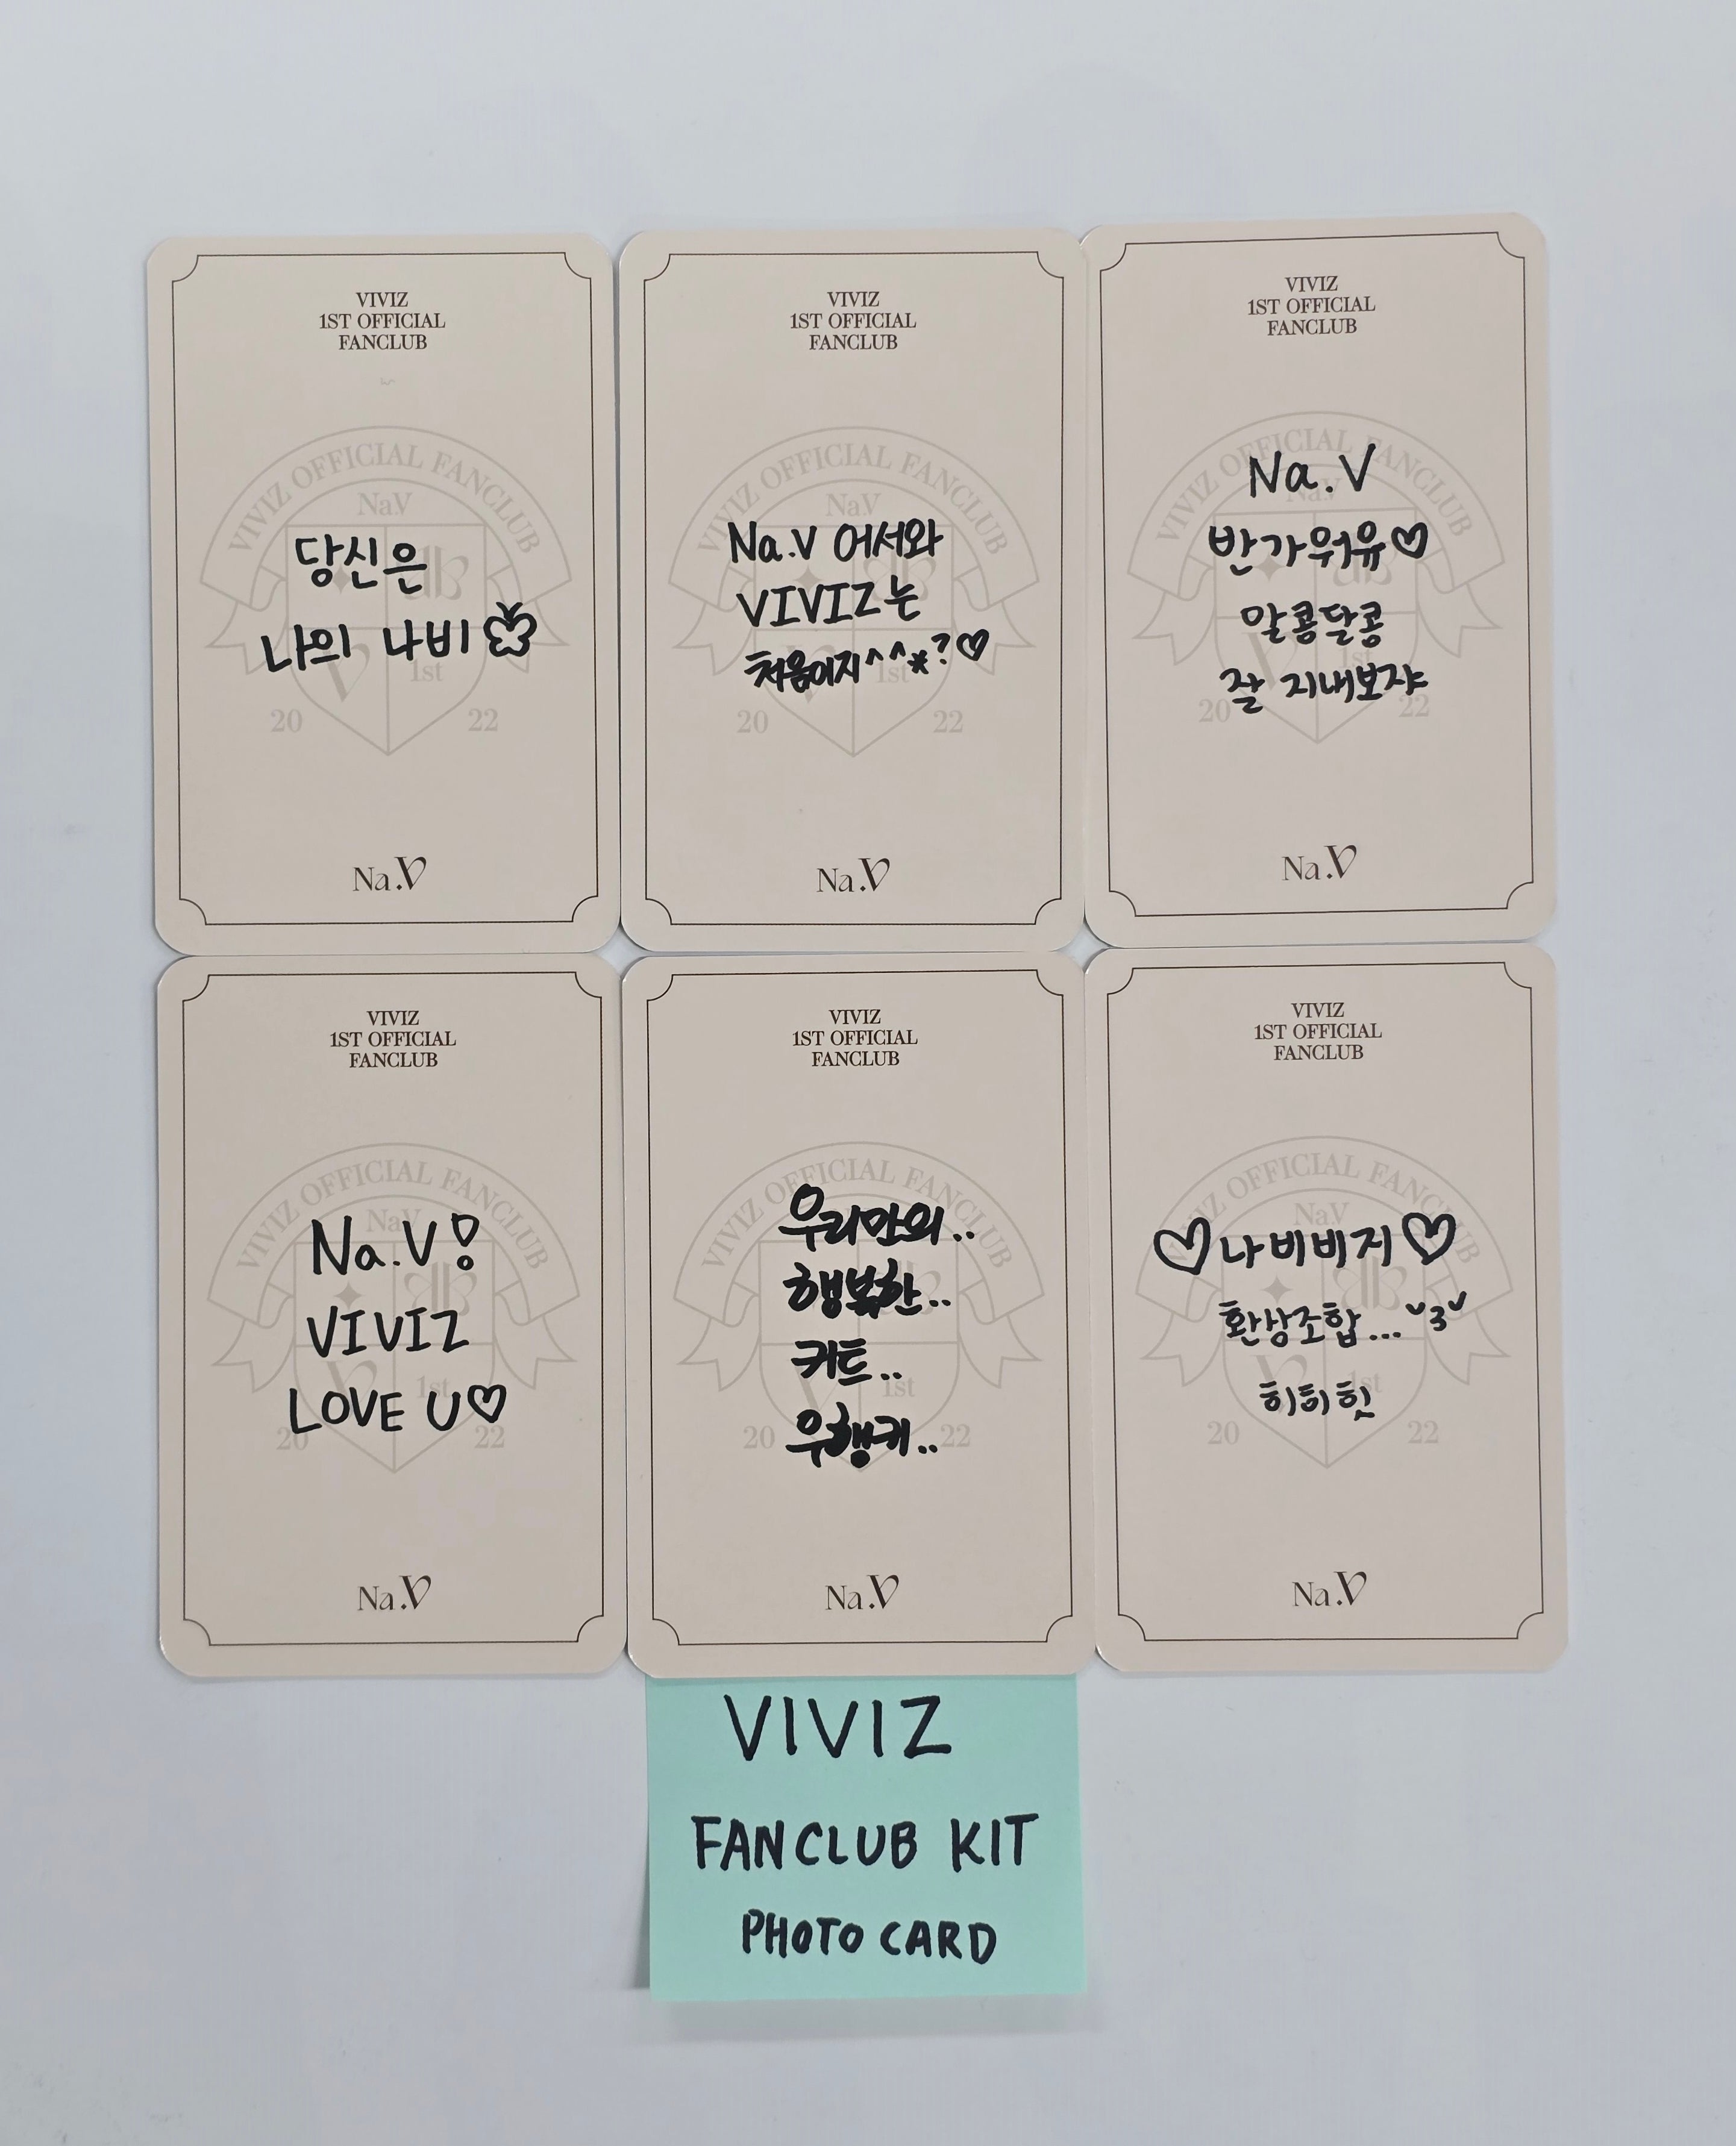 VIVIZ
1ST OFFICIAL
FANCLUB
VIVIZ OFFICIAL FANCLUB
NaV
당신은
나의 나비
1st
20 22
Na.V
VIVIZ
1ST OFFICIAL
FANCLUB
VIVIZ OFFICIAL FANCLUB
NaV
Na.V 어서와
VIVIZ는
처음이지^^*?♡
1st
20 22
Na.V
VIVIZ
1ST OFFICIAL
FANCLUB
VIVIZ OFFICIAL FANCLUB
NaV
Na.V
반가워유♡
알콩달콩
잘 지내보쟈
1st
20 22
Na.V
VIVIZ
1ST OFFICIAL
FANCLUB
VIVIZ OFFICIAL FANCLUB
NaV
Na.V!
VIVIZ
LOVE U♡
1st
20 22
Na.V
VIVIZ
1ST OFFICIAL
FANCLUB
VIVIZ OFFICIAL FANCLUB
우리만의..
행복한..
키트..
1st
우행키..
20 22
Na.V
VIVIZ
1ST OFFICIAL
FANCLUB
VIVIZ OFFICIAL FANCLUB
NaV
♡나비비지♡
환상조합...ˇ3ˇ
히히힛
1st
20 22
Na.V
VIVIZ
FANCLUB KIT
PHOTO CARD